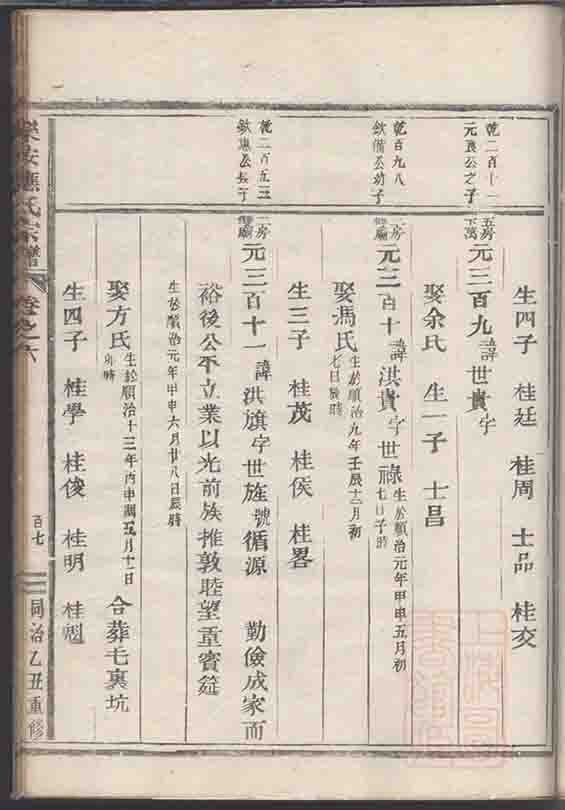 乾二百十一
元良公之子
乾百九八
欽備公幼子
乾二百五三
欽應公長子
生四子 桂廷 桂周 士品 桂交
五房
下萬
元三百九諱世貴字
娶余氏 生一子 士昌
二房
元三百十諱洪貴字世祿生於順治元年甲申五月初
七日子時
娶馮氏生於順治九年壬辰十二月初
七日辰時
生三子 桂茂 桂侯 桂畧
二房
元三百十一諱洪旗字世旌號循源 勤儉成家而
裕後公平立業以光前族推敦睦望重賓筵
生於順治元年甲申六月廿八日辰時
娶方氏生於順治十三年丙申閏五月十一日
卯時 合葬毛裏坑
生四子 桂學 桂俊 桂明 桂魁
樂安應氏宗譜 卷之六
百七
同治乙丑重修
上海圖書館藏